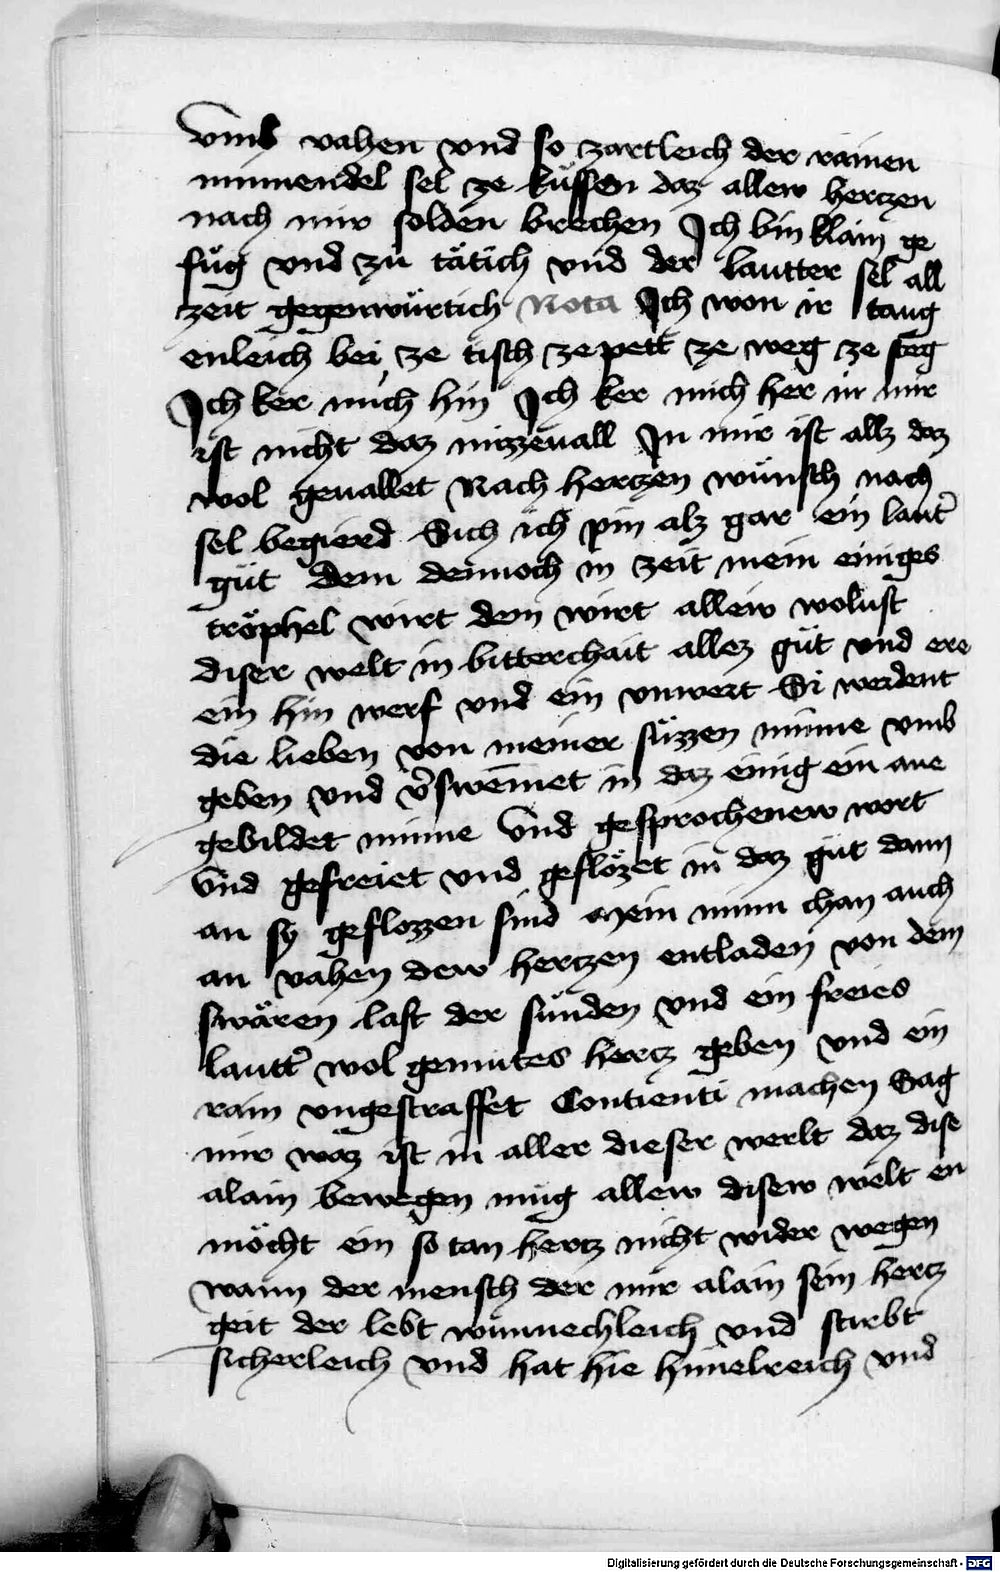 vmb vahen vnd so zartleich der rainen
minnendel sel ze küssen daz allew herczen
nach mir solden brechen Ich bin klain ge
füg vnd zü tätich vnd der lautter sel all
zeit gegenwürtich Nota Ich won ir taug
enleich bei ze tisch ze pett ze weg ze steg
Ich ker mich hin Ich ker mich her in mir
ist nicht daz missevall In mir ist allz daz
wol geuallet Nach herczen wünsch nach
sel begierd Sich ich pin alz gar ein laut͛
güt dem dennoch in zeit mein einiges
tröphel wirt dem wirt allew wolust
diser welt in bitterchait allez güt vnd ere
ein hin werf vnd ein vnwert Si werdent
die lieben von meiner süzzen minne vmb
geben vnd v͛swemet in daz einig ein ane
gebildet minne vnd gesprochenew wort
vnd gefreiet vnd geflözet in daz güt dann
an sy geflozzen sind Mein minn chan auch
an vahen dew herczen entladen von dem
swären last der sünden vnd ein freies
laut͛t wol gemutes hercz geben vnd ein
rain vngestraffet Contienti machen Sag
mir waz ist in aller dieser werlt daz dise
alain bewegen mug allew disew welt en
möcht ein so tan hercz nicht wider wegen
wann der mensch der mir alain sein hercz
geit der lebt wünnechleich vnd stirbt
sicherleich vnd hat hie himelreich vnd
Digitalisierung gefördert durch die Deutsche Forschungsgemeinschaft - DFG